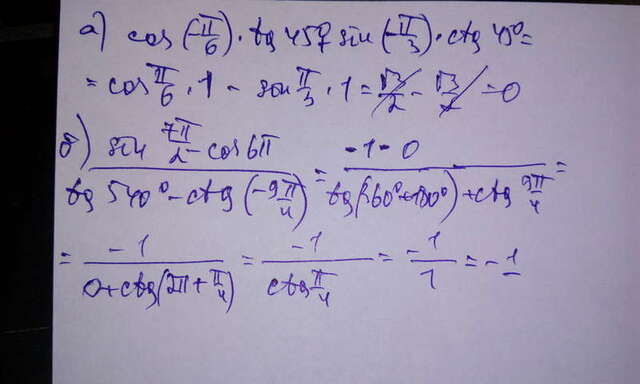 а) cos(-π/6) · tg 45° + sin(-π/3) · ctg 45° =
= cos π/6 · 1 - sin π/3 · 1 = √3/2 - √3/2 = 0
б) (sin 7π/2 - cos 6π)/(tg 540° - ctg(-9π/4)) = (-1-0)/(tg(360°+180°) + ctg 9π/4) =
= -1/(0+ctg(2π+π/4)) = -1/(ctg π/4) = -1/1 = -1